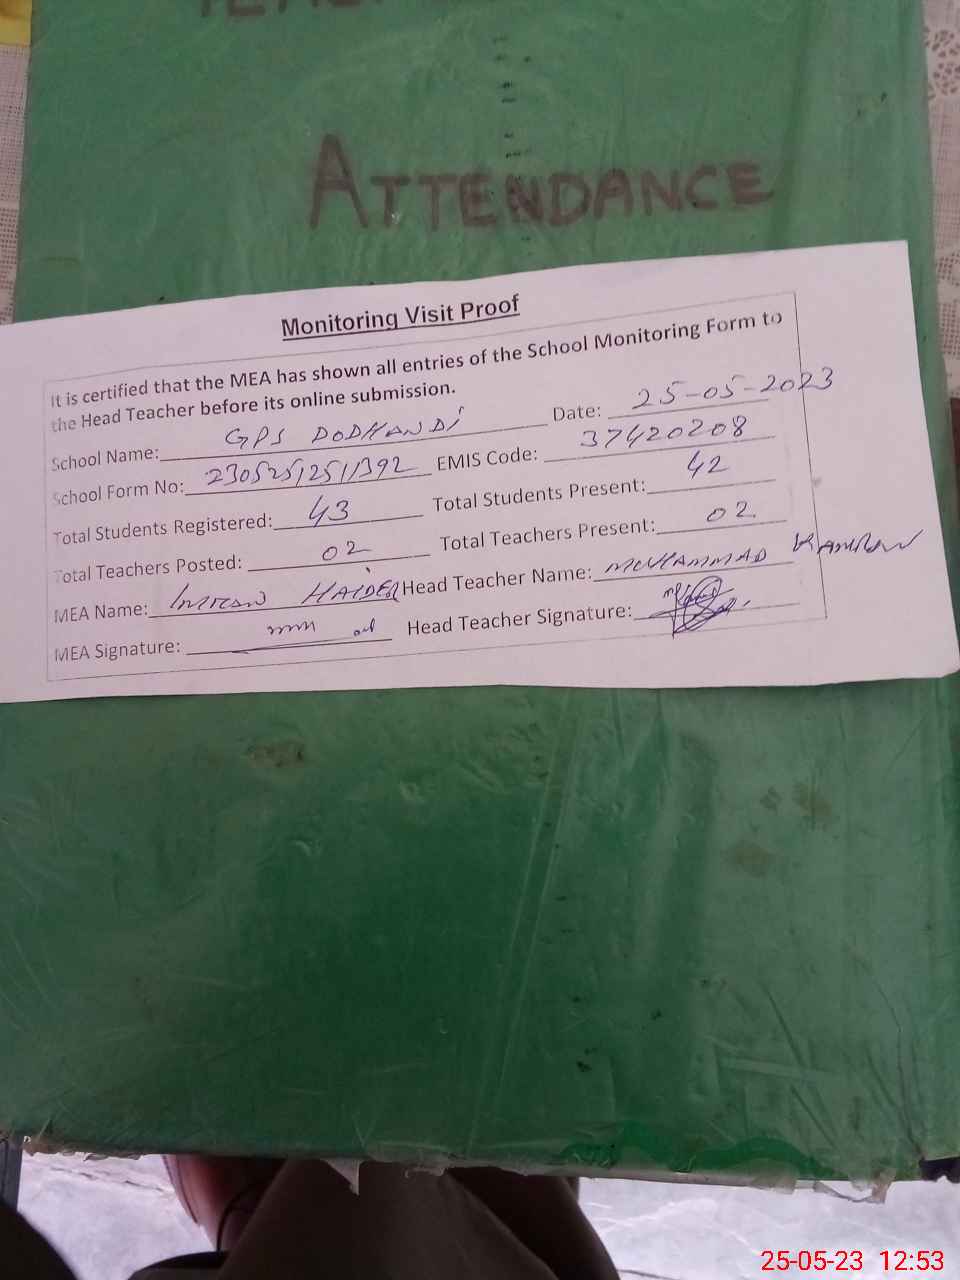 ATTENDANCE
Monitoring Visit Proof
It is certified that the MEA has shown all entries of the School Monitoring Form to
the Head Teacher before its online submission.
School Name: GPS DODHANDI Date: 25-05-2023
School Form No: 23052512511392 EMIS Code: 37420208
Total Students Registered: 43 Total Students Present: 42
Total Teachers Posted: 02 Total Teachers Present: 02
MEA Name: Imran HAIDER Head Teacher Name: MUHAMMAD KAMRAN
MEA Signature: Head Teacher Signature:
25-05-23 12:53